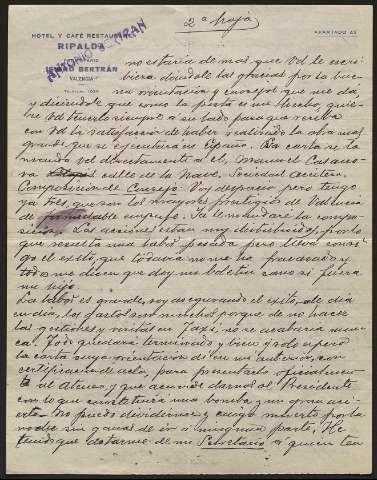 2ª hoja
HOTEL Y CAFÉ RESTAURANT
RIPALDA
BERTRÁN
VALENCIA
APARTADO 63
no estaria de mas que Vd le escri-
biera dandole las gracias por la bue-
na orientacion y consejos que me da,
y diciendole que como la parte es mas hecha, quie-
re Vd tenerlo siempre a su lado para que reciba
con Vd la satisfacción de haber realizado la obra mas
grande que se ejecutara en España. La carta se la
Vd directamente a el, Manuel Casano-
va calle de la Nave, Sociedad
Composicion de Consejo. Voy despacio pero tengo
ya tres, que son los mayores prestigios de Valencia
de formidable empuje. Ya le mandare la compo-
sicion. Las acciones estan muy distribuidas, por lo
que resulta una labor pesada pero lleva consi-
go el exito, que todavia no me ha fracasado y
todos me dicen que doy mi boletin como si fuera
mi hijo
La labor es grande, voy asegurando el exito, de dia
en dia, los gastos son muchos porque de no hacer
las gestiones y visitas en Taxi no se acabaria nun-
ca. Todo quedará terminado y bien y solo espero
la carta suya orientacion de mi anterior, con
certificacion de acta, para presentarlo oficialmen-
te al Ateneo, y que acuerde darnos al Presidente
con lo que constituira una bomba y un gran aci-
erto. No puedo dividirme y caigo muerto por la
noche sin ganas de ir a ninguna parte. He
tenido que dotarme de un Secretario a quien ten